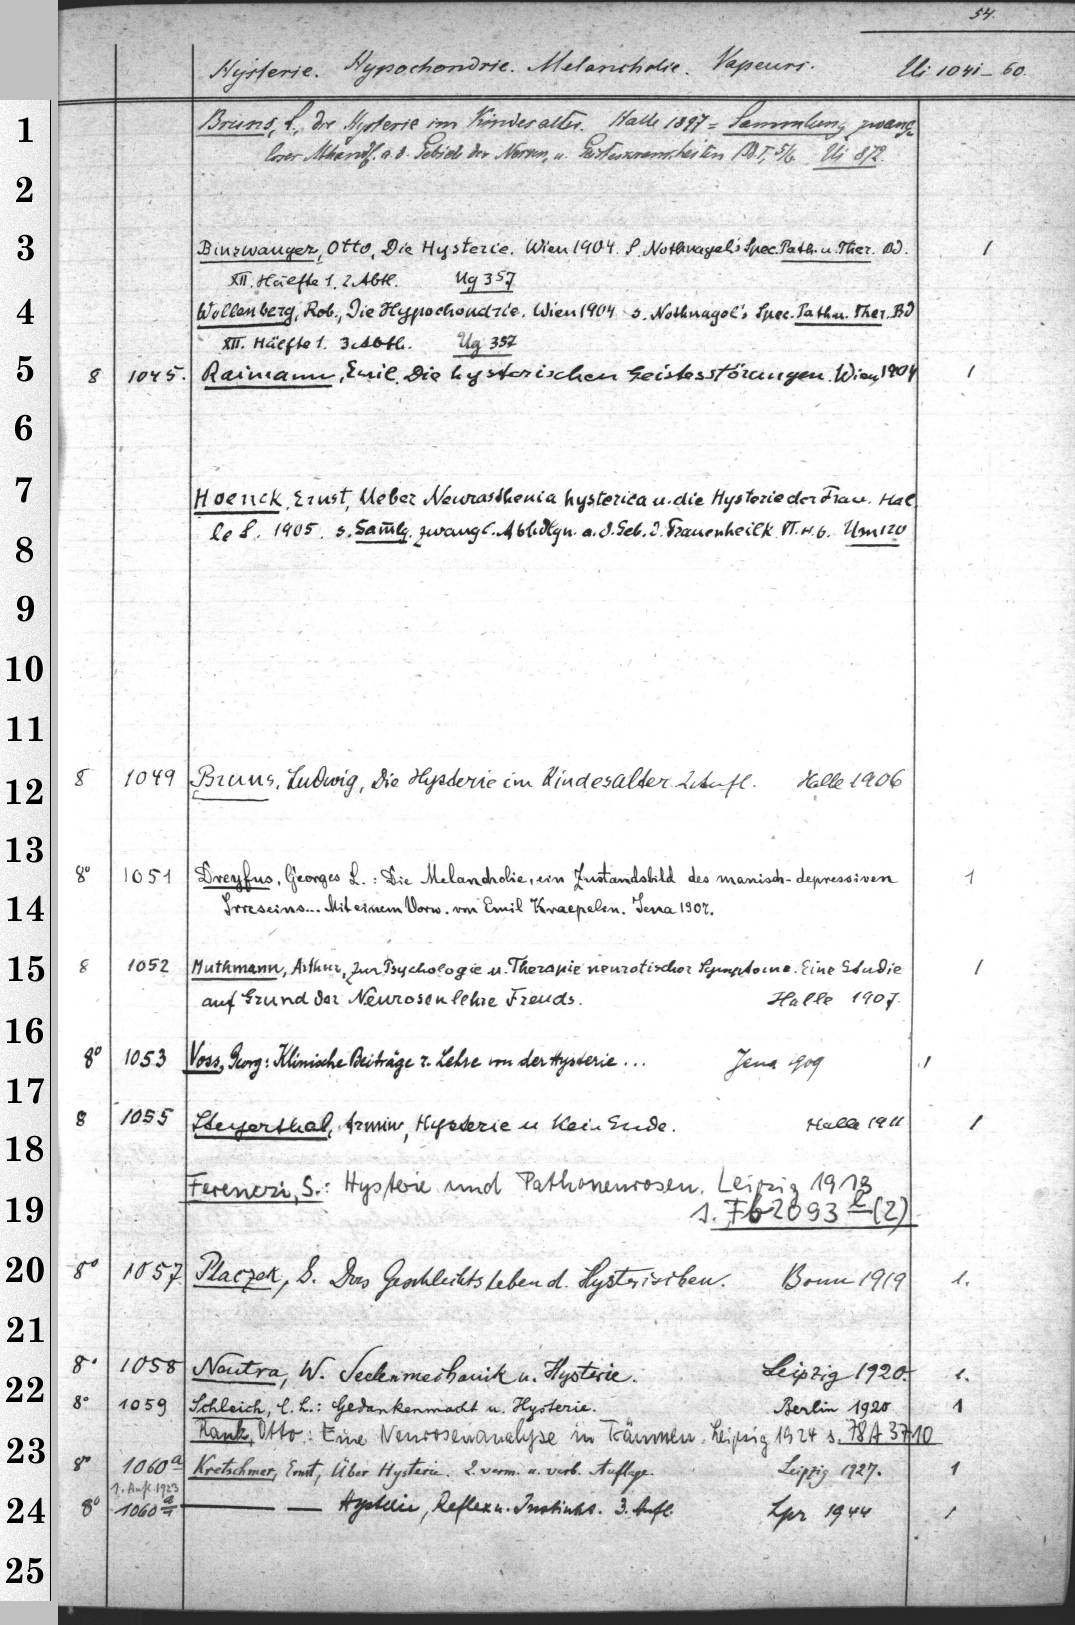 54.
Hysterie. Hypochondrie. Melancholie. Vapeurs. Ui 1041-60.
1 Bruns, L., die Hysterie im Kindesalter. Halle 1897 = Sammlung zwang-
loser Abhandl. a. d. Gebiete der Nerven- u. Geisteskrankheiten Bd I, 5/6. Ui 872.
2
3 Binswanger, Otto, Die Hysterie. Wien 1904. S. Nothnagel's Spec. Path. u. Ther. Bd. 1
XII. Hälfte 1, 2 Abtl. Ug 357
4 Wollenberg, Rob., Die Hypochondrie. Wien 1904 s. Nothnagel's Spec. Path u. Ther. Bd
XII. Hälfte 1. 3 Abth. Ug 357
5 8 1045. Raimann, Emil. Die hysterischen Geistesstörungen. Wien 1904 1
6
7 Hoenck, Ernst, Ueber Neurasthenia hysterica u. die Hysterie der Frau. Hal
8 le S. 1905. s. Samlg. zwangl. Abhdlgn. a. d. Geb. d. Frauenheilk VI. H. 6. Um 120
9
10
11
12 8 1049 Bruns, Ludwig, Die Hysterie im Kindesalter. 2. Aufl. Halle 1906
13
8° 1051 Dreyfus, Georges L.: Die Melancholie, ein Zustandsbild des manisch-depressiven 1
14 Irreseins... Mit einem Vorw. von Emil Kraepelin. Jena 1907.
15 8 1052 Muthmann, Arthur, Zur Psychologie u. Therapie neurotischer Symptome. Eine Studie 1
auf Grund der Neurosenlehre Freuds. Halle 1907.
16
8° 1053 Voss, Georg: Klinische Beiträge z. Lehre von der Hysterie ... Jena 1909 1
17
8 1055 Steyerthal, Armin, Hysterie u kein Ende. Halle 1911 1
18
Ferenczi, S.: Hysterie und Pathoneurosen. Leipzig 1913
19 s. Fb 2093 e (2)
20 8° 1057 Placzek, S. Das Geschlechtsleben d. Hysterischen. Bonn 1919 1.
21
8° 1058 Noutra, W. Seelenmechanik u. Hysterie. Leipzig 1920. 1.
22
8° 1059 Schleich, C. L.: Gedankenmacht u. Hysterie. Berlin 1920 1
Rank, Otto: Eine Neurosenanalyse in Träumen. Leipzig 1924 s. 78 A 3710
23
8° 1060 a Kretschmer, Ernst, Über Hysterie. 2. verm. u. verb. Auflage. Leipzig 1927. 1
1. Aufl. 1923
24 8° 1060 a/1 — — Hysterie, Reflex u. Instinkt. 3. Aufl. Lpz 1944 1
25